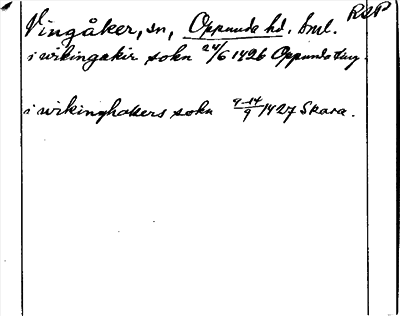 RSP
Vingåker, sn, Oppunda hd. Sml.
i wikingakir sokn 24/6 1426 Oppunda ting.
i wikinghakers sokn 9-14/9 1427 Skara.